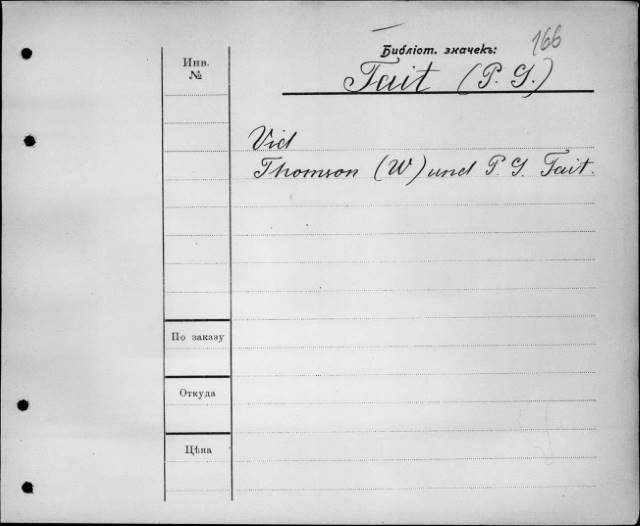 166
Библіот. значекъ:
Tait (P. G.)
Инв.
№
Vid
Thomson (W) und P. G. Tait.
По заказу
Откуда
Цѣна